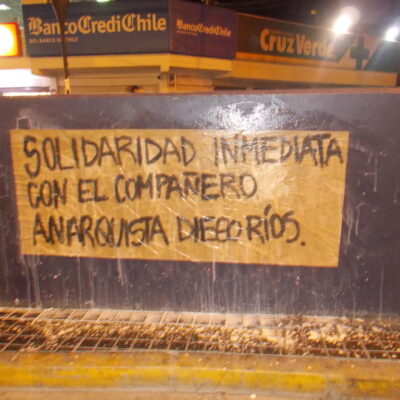 BancoCrediChile
DEL BANCO DE CHILE
BancoCrediChile
Cruz Verde
SOLIDARIDAD INMEDIATA
CON EL COMPAÑERO
ANARQUISTA DIEGO RÍOS.